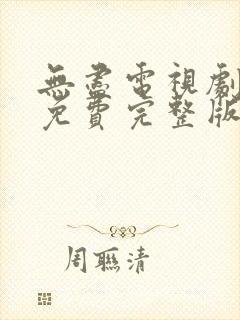 無盡電視劇
免費完整版
周聯清